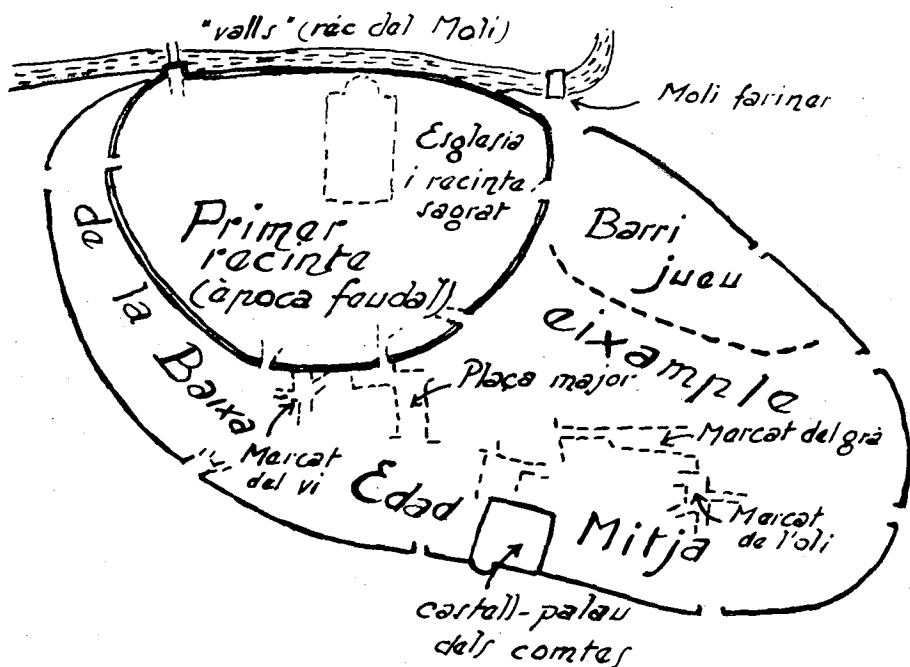 "valls" (réc del Moli)
Moli fariner
Església
i recinte
sagrat
Primer
recinte
(època feudal)
Barri
jueu
eixample
de la Baixa
Edad Mitja
Plaça major
Mercat
del vi
Mercat del grà
Mercat
de l'oli
castell-palau
dels comtes